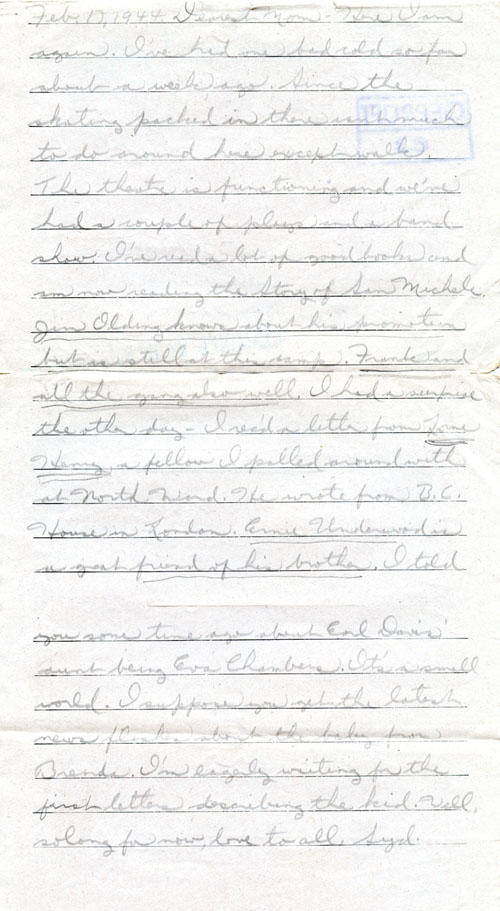 Feb. 17, 1944. Dearest Mom - Here I am
again. I've had one bad cold so far
about a week ago. Since the
skating packed in there isn't much
to do around here except walk.
The theatre is functioning and we've
had a couple of plays and a band
show. I've read a lot of good books and
am now reading the Story of San Michele.
Jim Olding knows about his promotion
but is still at this camp. Frank and
all the gang also well. I had a surprise
the other day - I rec'd a letter from Lorne
Henry, a fellow I palled around with
at North Ward. He wrote from B.C.
House in London. Ernie Underwood is
a great friend of his brother. I told
you some time ago about Earl Davis'
aunt being Eva Chambers. It's a small
world. I suppose you get the latest
news flashes about the baby from
Brenda. I'm eagerly waiting for the
first letters describing the kid. Well,
so long for now, love to all, Syd.